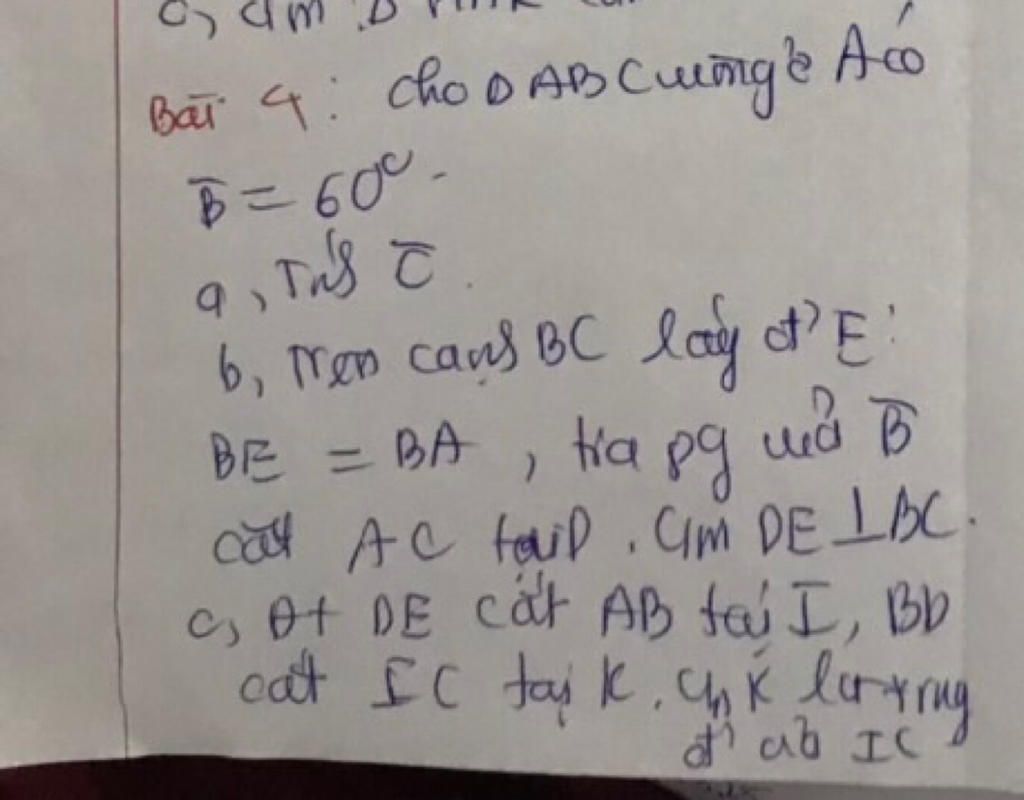 c, cm Δ
Bài 4: Cho Δ ABC vuông ở A có
B̂ = 60°.
a, Tính Ĉ.
b, Trên cạnh BC lấy đ' E:
BE = BA, tia pg của B̂
cắt AC tại D. Cm DE ⊥ BC.
c, Đt DE cắt AB tại I, BD
cắt IC tại K. Cm K là trung
đ' của IC